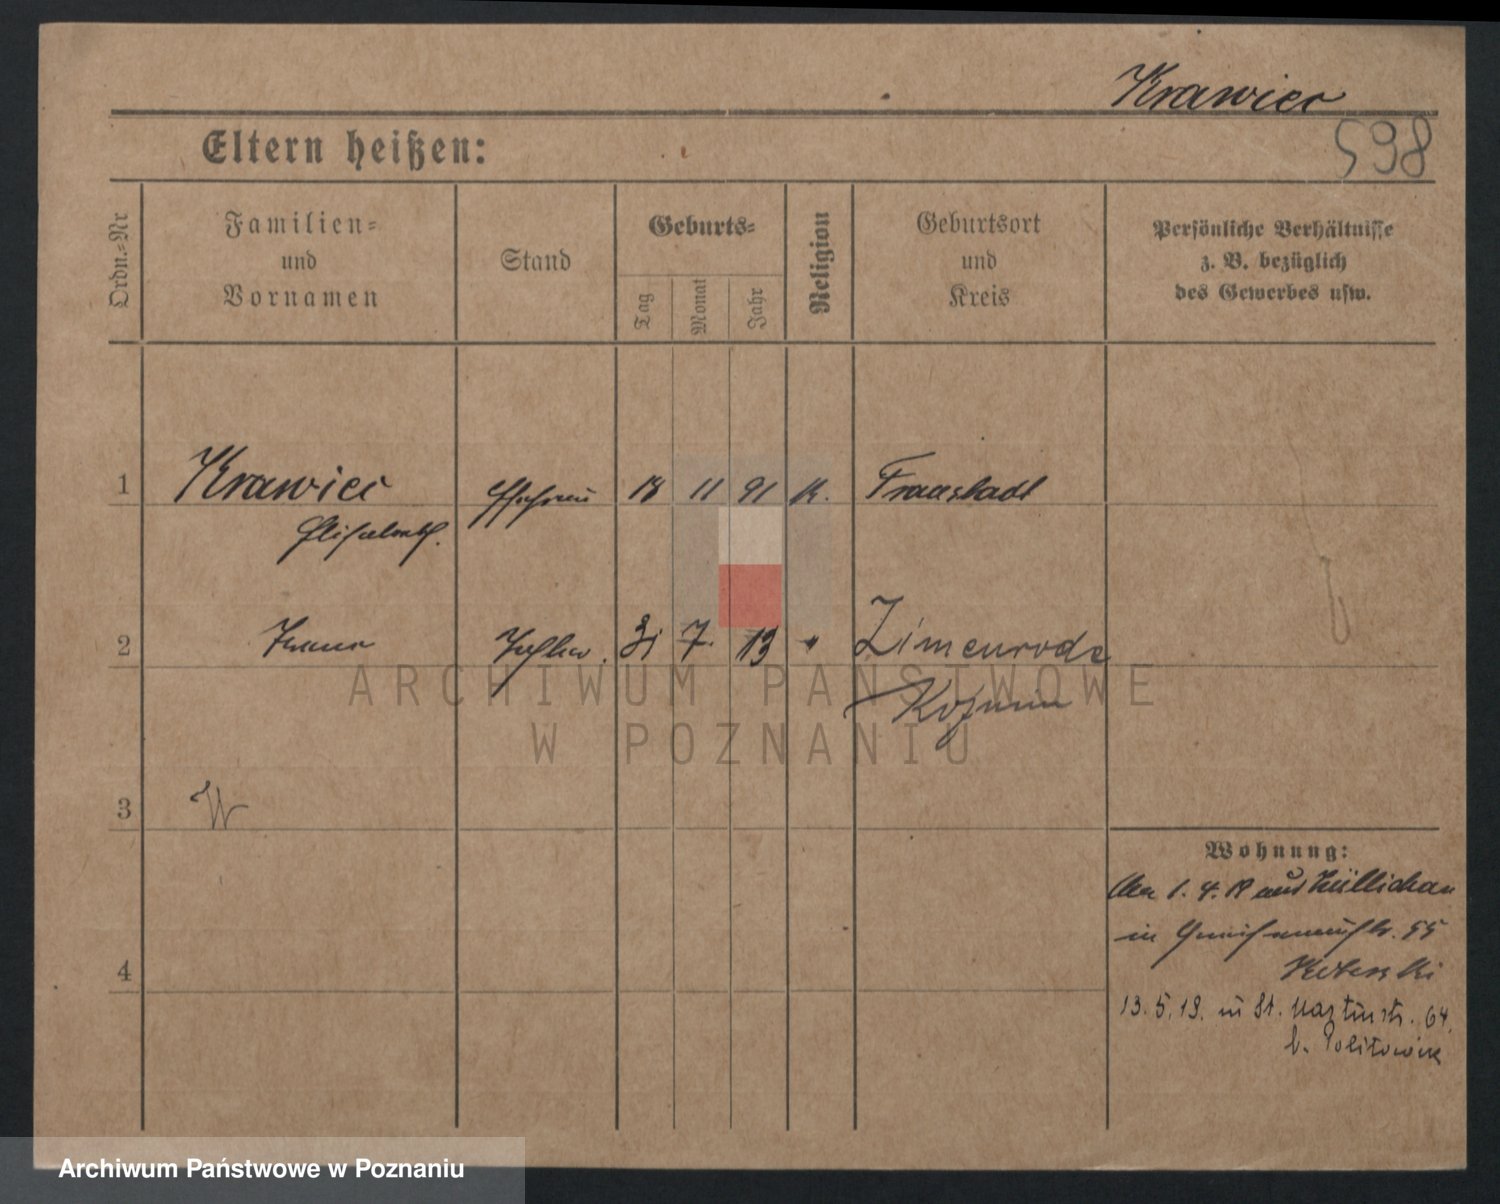 Krawiec
598
Eltern heißen:
Ordn.-Nr
Familien-
und
Vornamen
Stand
Geburts-
Tag
Monat
Jahr
Religion
Geburtsort
und
Kreis
Persönliche Verhältnisse
z. B. bezüglich
des Gewerbes usw.
1 Krawiec Ehefrau 18 11 91 K. Fraustadt
Elisabeth.
2 Irena Tochter. 31 7. 13 " Zimenroda
Koschmin
3 W
4
Wohnung:
Am 1. 4. 19 aus Züllichau
in Gneisenaustr. 55
13. 5. 19. in St. Martinstr. 64.
b.
ARCHIWUM PAŃSTWOWE
W POZNANIU
Archiwum Państwowe w Poznaniu